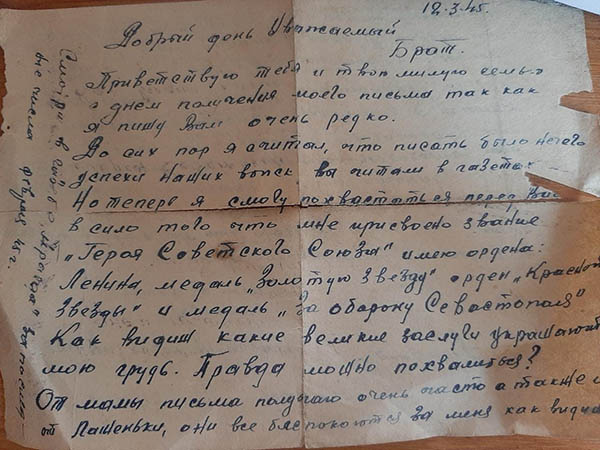 12.3.45г.
Добрый день Уважаемый
Брат.
Приветствую тебя и твою милую семью
с днем получения моего письма так как
я пишу Вам очень редко.
До сих пор я считал, что писать было нечего
успехи наших войск вы читали в газетах
Но теперь я смогу похвастаться перед Вами
в сило того что мне присвоено звание
„Героя Советского Союза" имею ордена:
Ленина, медаль „Золотую Звезду" орден „Красной
Звезды" и медаль „За оборону Севастополя"
Как видиш какие великие заслуги украшают
мою грудь. Правда можно похвалиться?
От мамы письма получаю очень часто а также и
от Пашеньки, они все беспокоются за меня как видиш
Смотри в
числа февраля 45г.